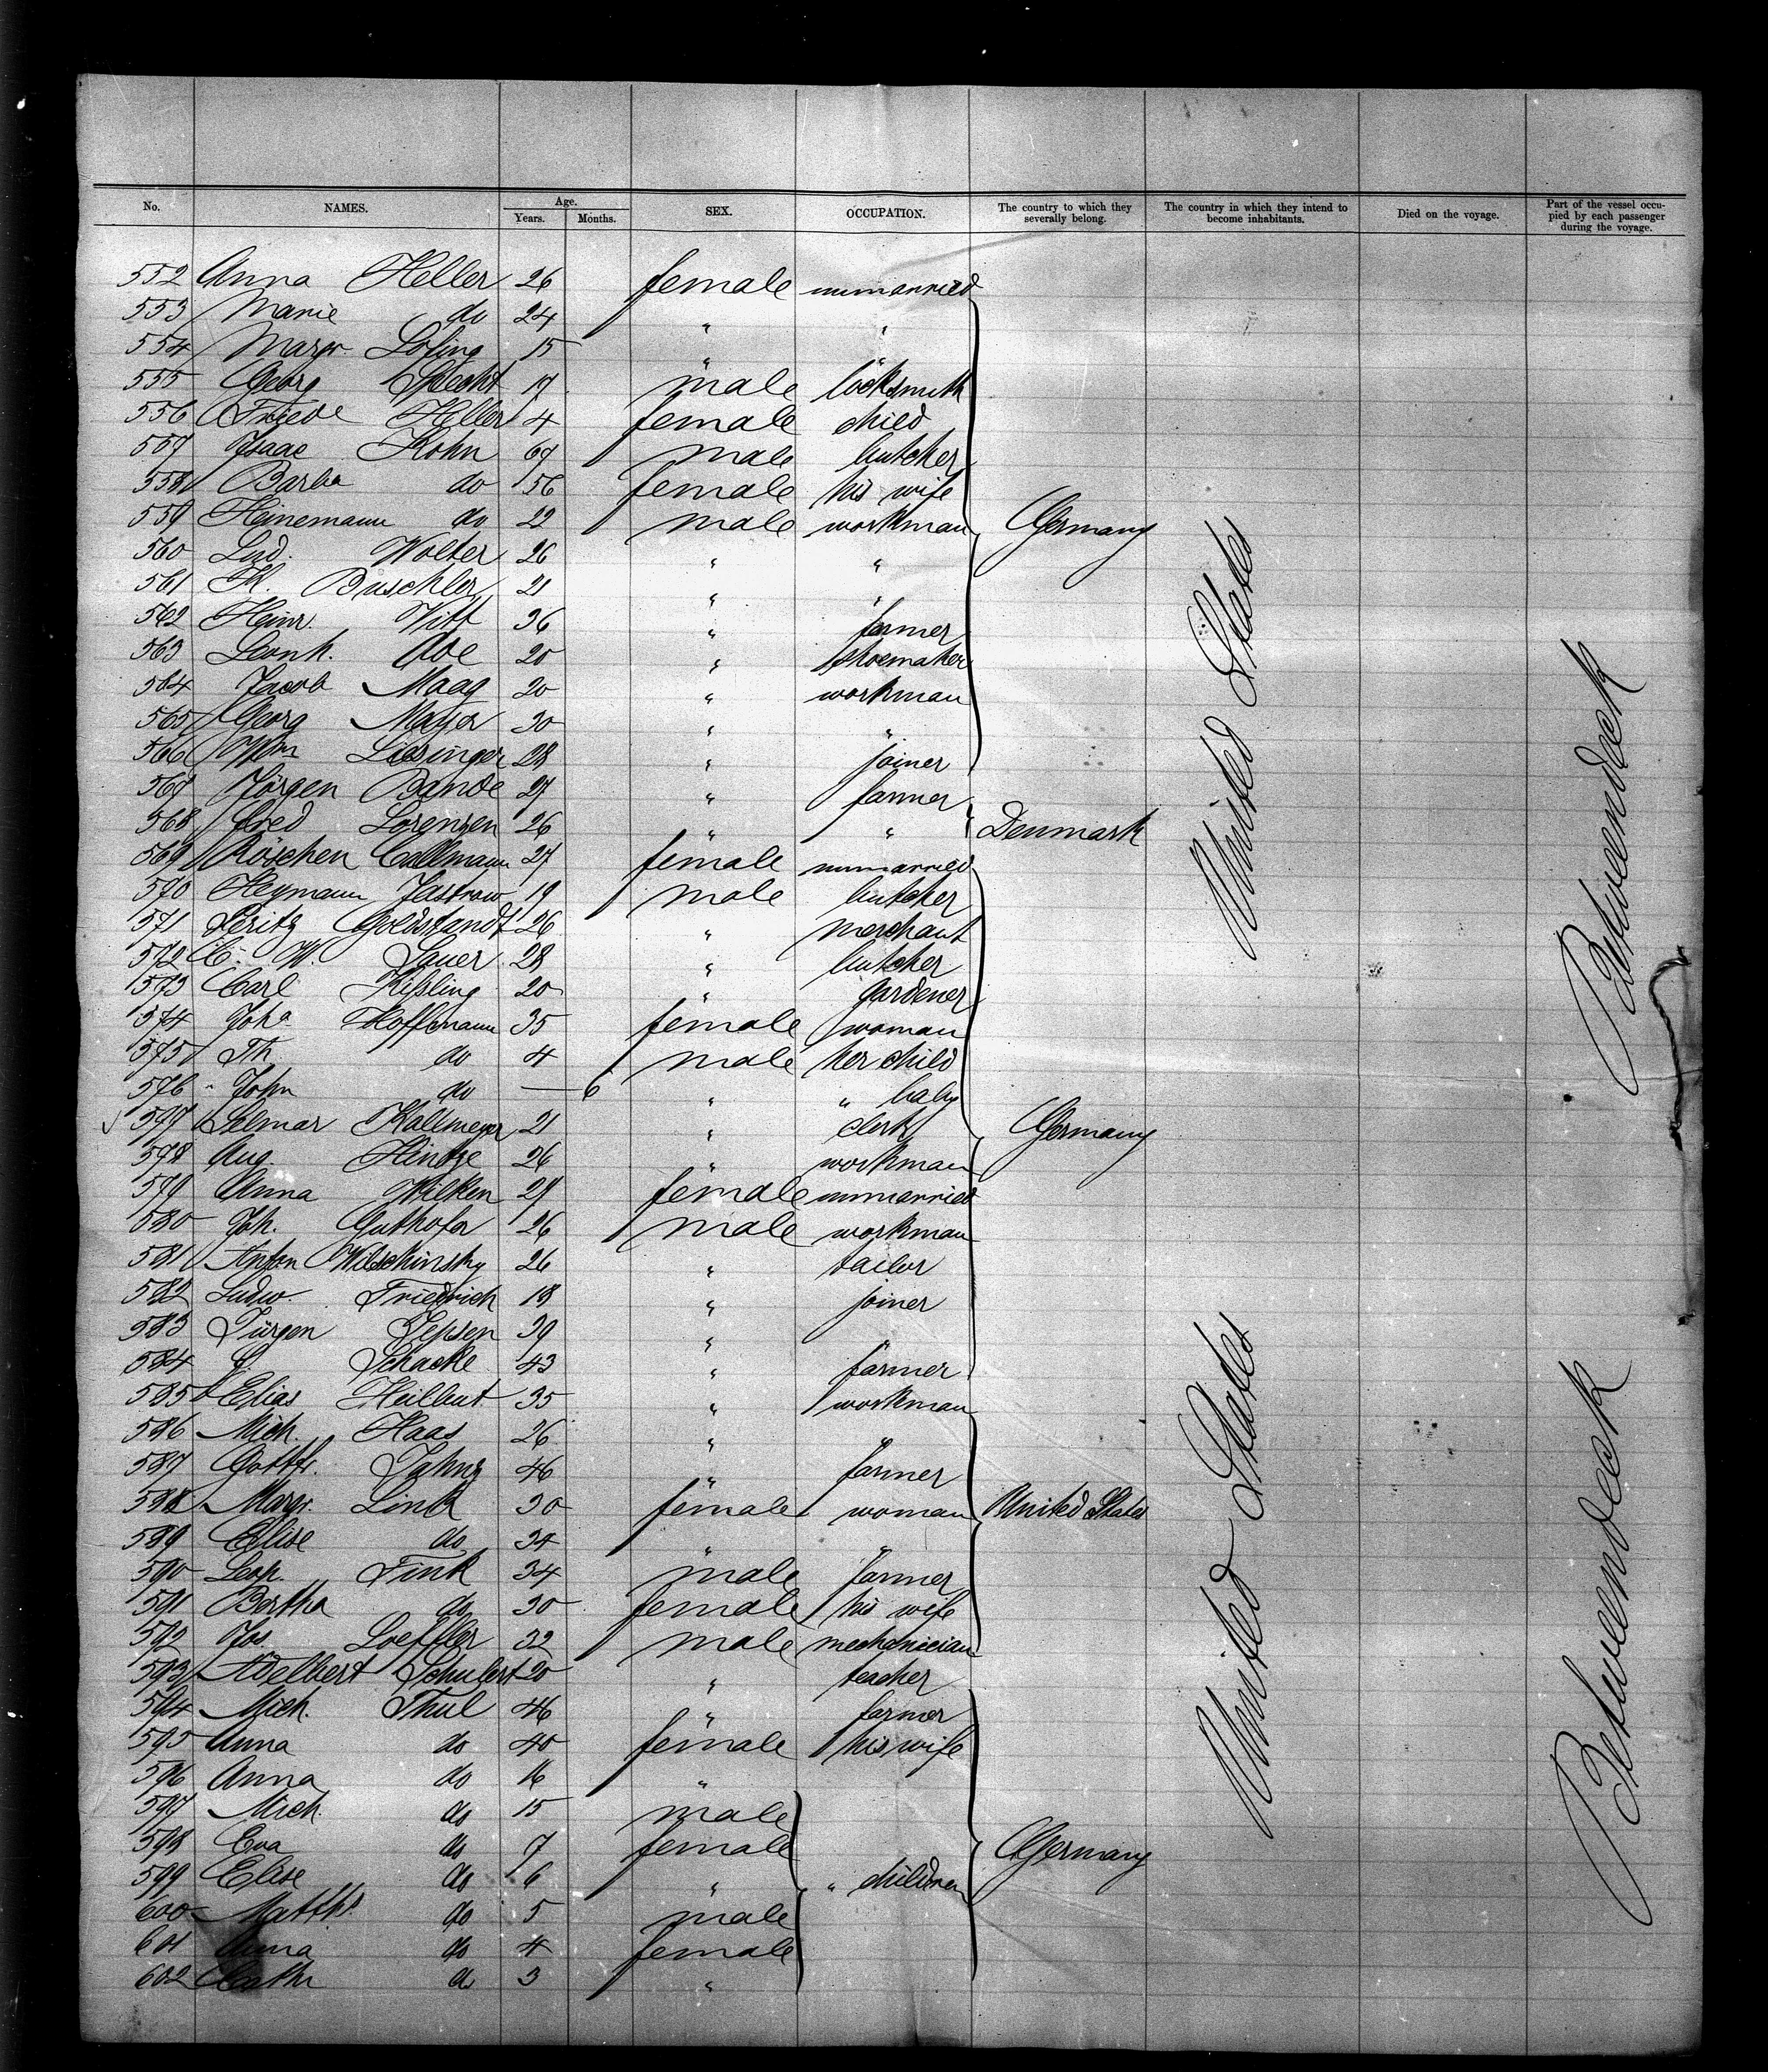 No. NAMES. Age. Years. Months. SEX. OCCUPATION. The country to which they severally belong. The country in which they intend to become inhabitants. Died on the voyage. Part of the vessel occupied by each passenger during the voyage.
552 Anna Heller 26 female unmarried
553 Marie do 24 " "
554 Margr. Löfing 15 " "
555 Georg Specht 17 male locksmith
556 Friede Heller 4 female child
557 Isaac Kohn 67 male butcher
558 Barba do 56 female his wife
559 Heinemann do 22 male workman Germany
560 Lud. Wolter 26 " "
561 Buschler 21 " "
562 Heinr. Witt 36 " farmer
563 Leonh. 20 " shoemaker
564 Jacob Maag 20 " workman
565 Georg Mayer 30 " "
566 Wm Liesinger 28 " joiner
567 Jörgen Bande 27 " farmer
568 Lorenzen 26 " " Denmark
569 Röschen Callmann 27 female unmarried
570 Heymann Jastrow 19 male butcher
571 Goldstandt 26 " merchant
572 C. W. Sauer 28 " butcher
573 Carl Kißling 20 " gardener
574 Joha Hoffmann 35 female woman
575 Th. do 4 male her child
576 " John do — 6 " " baby
577 Selmar Kallmeyer 21 " clerk Germany
578 Aug. Hintze 26 " workman
579 Anna Wilken 27 female unmarried
580 Joh. Guthofer 26 male workman
581 Anton Wilschinsky 26 " tailor
582 Ludw. Friedrich 18 " joiner
583 Jürgen Jepsen 39 " "
584 Schacke 43 " farmer
585 Elias Heilbut 35 " workman
586 Mich. Haas 26 " "
587 Gottfr. Jahnz 46 " farmer
588 Margr. Link 30 female woman United States
589 Elise do 34 " "
590 Leop. Fink 34 male farmer
591 Bertha do 30 female his wife
592 Jos. Loeffler 32 male mechanician
593 Adelbert Schubert 20 " teacher
594 Mich. Thul 46 " farmer
595 Anna do 40 female his wife
596 Anna do 16 "
597 Mich. do 15 male
598 Eva do 7 female Germany
599 Elise do 6 " " children
600 Matths do 5 male
601 Anna do 4 female
602 Cathr do 3 "
United States
United States
Betweendeck
Betweendeck